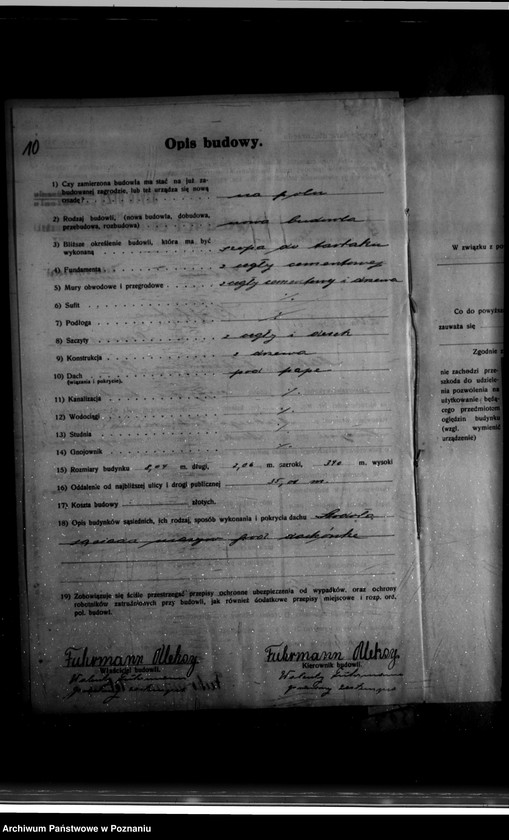 10
Opis budowy.
1) Czy zamierzona budowla ma stać na już za-
budowanej zagrodzie, lub też urządza się nową
osadę? na polu
2) Rodzaj budowli, (nowa budowla, dobudowa,
przebudowa, rozbudowa) nowa budowla
3) Bliższe określenie budowli, która ma być
wykonaną szopa do tartaku
4) Fundamenta z cegły cementowej
5) Mury obwodowe i przegrodowe z cegły cementowej i drzewa
6) Sufit ./.
7) Podłoga ./.
8) Szczyty z cegły i desek
9) Konstrukcja z drzewa
10) Dach pod papę
(wiązania i pokrycie).
11) Kanalizacja ./.
12) Wodociągi ./.
13) Studnia ./.
14) Gnojownik ./.
15) Rozmiary budynku m. długi, m. szeroki, m. wysoki
16) Oddalenie od najbliższej ulicy i drogi publicznej m.
17) Koszta budowy złotych.
18) Opis budynków sąsiednich, ich rodzaj, sposób wykonania i pokrycia dachu Stodoła
sąsiada pod dachówkę
19) Zobowiązuje się ściśle przestrzegać przepisy ochronne ubezpieczenia od wypadków, oraz ochrony
robotników zatrudnionych przy budowli, jak również dodatkowe przepisy miejscowe i rozp. orz.
pol. budowl.
Fuhrmann
Właściciel budowli.
Fuhrmann
Kierownik budowli.
W związku z po
Co do powyższ
zauważa się
Zgodnie z
nie zachodzi prze-
szkoda do udziele-
nia pozwolenia na
użytkowanie będą-
cego przedmiotom
oględzin budynku
(wzgl. wymienić
urządzenie)
Archiwum Państwowe w Poznaniu